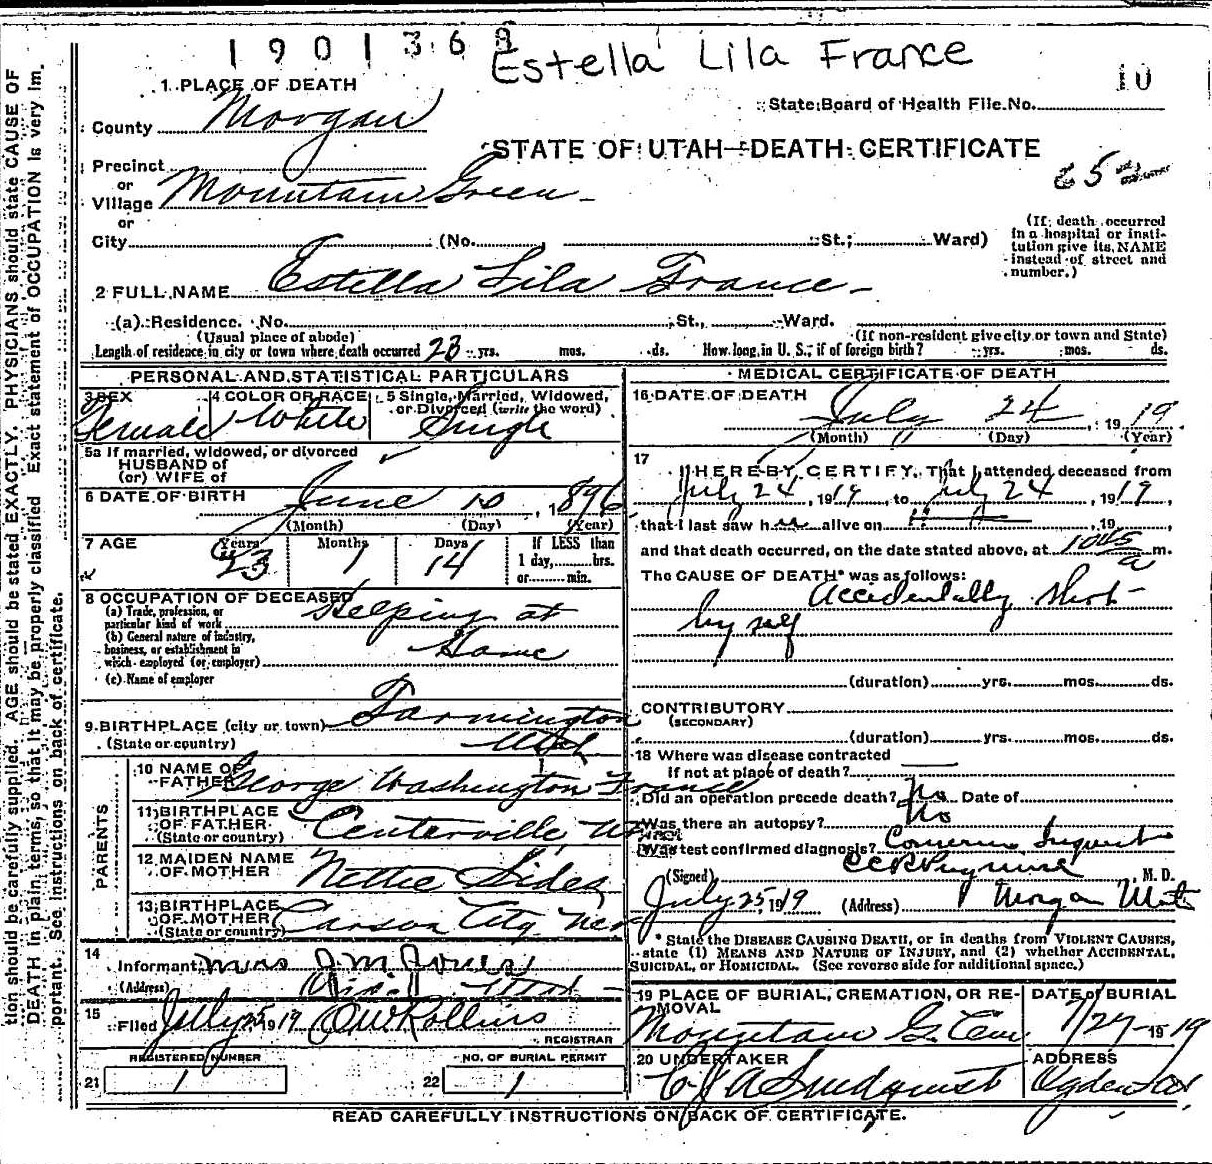 1901368
Estella Lila France
10
1 PLACE OF DEATH
State Board of Health File No.
County Morgan
STATE OF UTAH—DEATH CERTIFICATE
Precinct
or
Village Mountain Green
or
City (No. St.; Ward)
(If death occurred in a hospital or institution give its NAME instead of street and number.)
2 FULL NAME Estella Lila France
(a) Residence. No. St., Ward.
(Usual place of abode) (If non-resident give city or town and State)
Length of residence in city or town where death occurred 23 yrs. mos. ds. How long in U. S., if of foreign birth? yrs. mos. ds.
PERSONAL AND STATISTICAL PARTICULARS
3 SEX Female
4 COLOR OR RACE White
5 Single, Married, Widowed, or Divorced (write the word) Single
5a If married, widowed, or divorced
HUSBAND of
(or) WIFE of
6 DATE OF BIRTH June 10, 1896
(Month) (Day) (Year)
7 AGE Years 23 Months 1 Days 14
If LESS than 1 day, hrs. or min.
8 OCCUPATION OF DECEASED
(a) Trade, profession, or particular kind of work Helping at
(b) General nature of industry, business, or establishment in which employed (or employer) Home
(c) Name of employer
9 BIRTHPLACE (city or town) Farmington
(State or country) Utah
PARENTS
10 NAME OF FATHER George Washington France
11 BIRTHPLACE OF FATHER (State or country) Centerville
12 MAIDEN NAME OF MOTHER Nettie Sides
13 BIRTHPLACE OF MOTHER (State or country) Carson City Nev
14 Informant Mrs J.M. Jones
(Address) Utah
15 Filed July 25 1919 O W Rollins
REGISTRAR
REGISTERED NUMBER NO. OF BURIAL PERMIT
21 1 22 1
MEDICAL CERTIFICATE OF DEATH
16 DATE OF DEATH July 24, 1919
(Month) (Day) (Year)
17 I HEREBY CERTIFY, That I attended deceased from
July 24, 1919, to July 24, 1919,
that I last saw h alive on , 19 ,
and that death occurred, on the date stated above, at 1045 a m.
The CAUSE OF DEATH* was as follows:
Accidentally shot
by self
(duration) yrs. mos. ds.
CONTRIBUTORY
(SECONDARY)
(duration) yrs. mos. ds.
18 Where was disease contracted
if not at place of death?
Did an operation precede death? No Date of
Was there an autopsy? No
What test confirmed diagnosis? Coroners Inquest
(Signed) , M. D.
July 25, 1919 (Address) Morgan Utah
* State the DISEASE CAUSING DEATH, or in deaths from VIOLENT CAUSES, state (1) MEANS AND NATURE OF INJURY, and (2) whether ACCIDENTAL, SUICIDAL, or HOMICIDAL. (See reverse side for additional space.)
19 PLACE OF BURIAL, CREMATION, OR REMOVAL Mountain G. Cem
DATE of BURIAL 7/27 1919
20 UNDERTAKER
ADDRESS Ogden
READ CAREFULLY INSTRUCTIONS ON BACK OF CERTIFICATE.
tion should be carefully supplied. AGE should be stated EXACTLY. PHYSICIANS should state CAUSE OF
DEATH in plain terms, so that it may be properly classified. Exact statement of OCCUPATION is very im-
portant. See instructions on back of certificate.